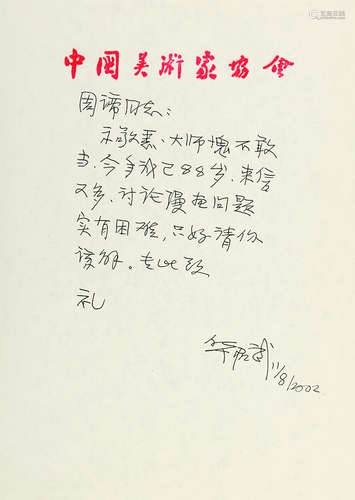 中国美術家协会
周谛同志：
示敬悉、大师愧不敢
当，今年我已88岁，来信
又多，讨论漫画问题
实有困难，只好请你
谅解。专此致
礼
华君武 11/8/2002